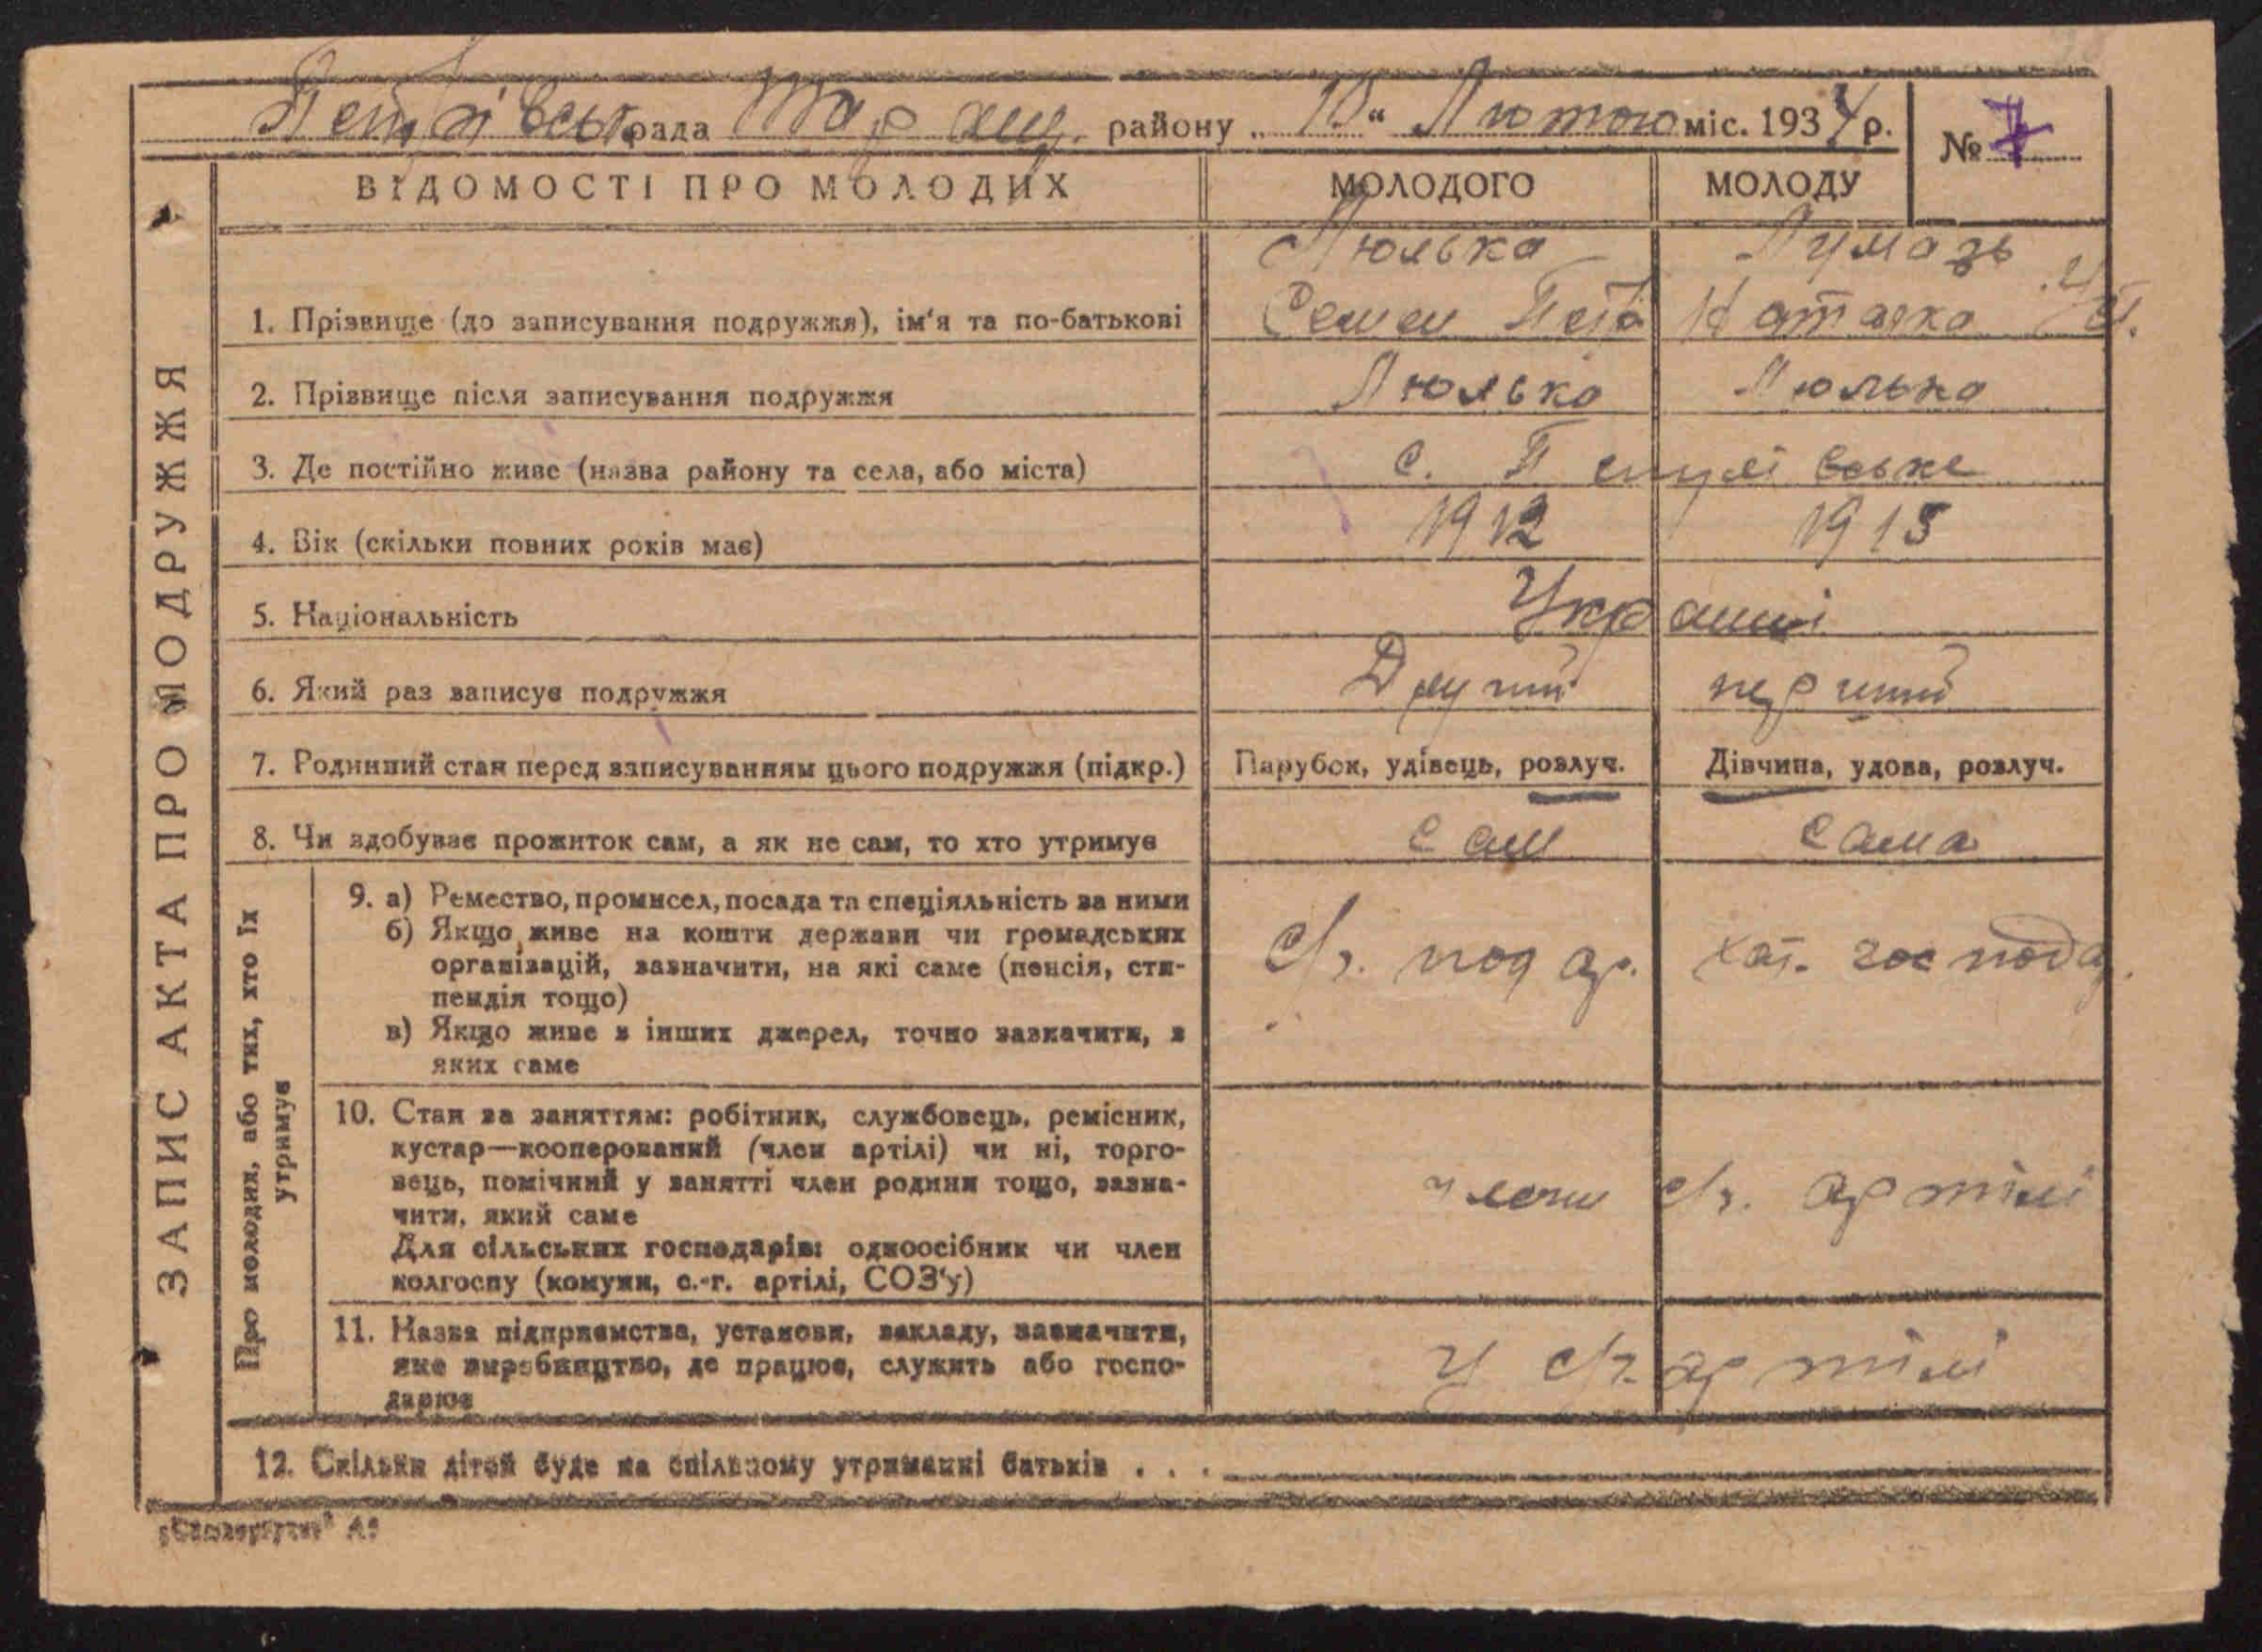 Петрівськ рада Тар ащ. району „ 10 “ Лютого міс. 1934 р.
№ 7
ВІДОМОСТІ ПРО МОЛОДИХ
МОЛОДОГО
МОЛОДУ
ЗАПИС АКТА ПРО ПОДРУЖЖЯ
1. Прізвище (до записування подружжя), ім'я та по-батькові
Люлька
Семен
Лумазь
Наталка
2. Прізвище після записування подружжя
Люлька
Люлька
3. Де постійно живе (назва району та села, або міста)
с.
4. Вік (скільки повних років має)
1912
1915
5. Національність
Украинці
6. Який раз записує подружжя
Другий
перший
7. Родинний стан перед записуванням цього подружжя (підкр.)
Парубок, удівець, розлуч.
Дівчина, удова, розлуч.
8. Чи здобуває прожиток сам, а як не сам, то хто утримує
сам
сама
Про молодих, або тих, хто їх
утримує
9. а) Ремество, промисел, посада та спеціяльність за ними
б) Якщо живе на кошти держави чи громадських
організацій, зазначити, на які саме (пенсія, сти-
пендія тощо)
в) Якщо живе з інших джерел, точно зазначити, з
яких саме
с/г.
хат. господ.
10. Стан за заняттям: робітник, службовець, ремісник,
кустар—кооперований (член артілі) чи ні, торго-
вець, помічний у занятті член родини тощо, зазна-
чити, який саме
Для сільських господарів: одноосібник чи член
колгоспу (комуни, с.-г. артілі, СОЗ'у)
члени с/г. артілі
11. Назва підприємства, установи, закладу, зазначити,
яке виробництво, де працює, служить або госпо-
дарює
У с/г. артілі
12. Скільки дітей буде на спільному утриманні батьків . . .